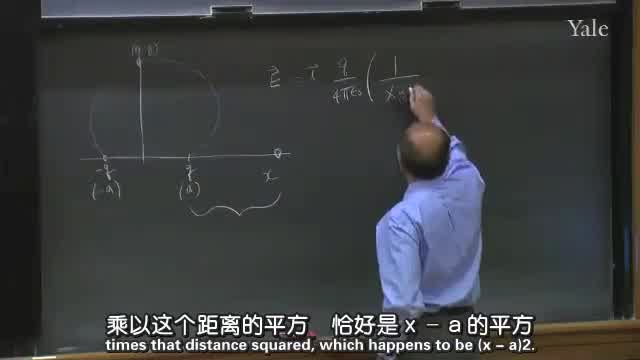 Yale
(0, y)
E = i q/4πε₀ ( 1/x-a
-q q x
(-a) (a)
乘以这个距离的平方 恰好是 x - a 的平方
times that distance squared, which happens to be (x – a)2.